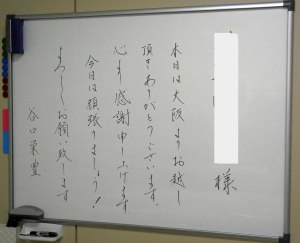 様
本日は大阪よりお越し
頂きありがとうございます。
心より感謝申し上げます
今日は頑張りましょう!
よろしくお願い致します
谷口栄豊